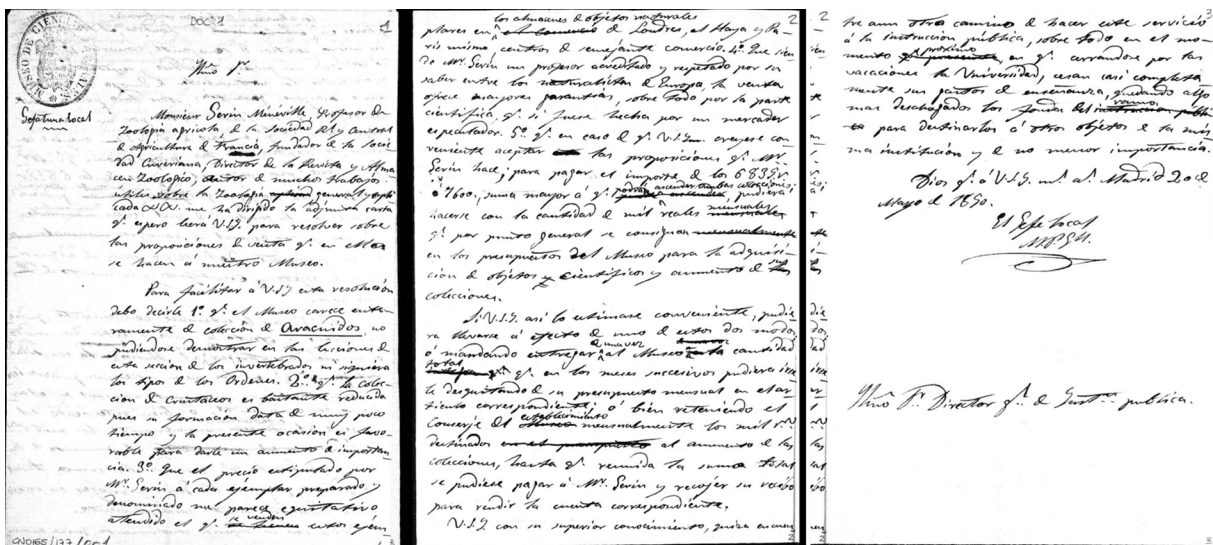 DOC. 1
1
MUSEO DE CIENCIAS
Gefatura local
Ylmo Sr.
Monsieur Serin Mineville Profesor de
Zoologia agricola de la Sociedad Rl y Central
de Agricultura de Francia, fundador de la Socie
dad Cuveriana, Director de la Revista y Alma
cen Zoologico, autor de muchos trabajos
utiles sobre la Zoologia general y apli
cada &. &. me ha dirigido la adjunta carta
qe. espero leerá V.S.Y. para resolver sobre
las proposiciones de venta qe. en ella
se hacen á nuestro Museo.
Para facilitar á V.S.Y esta resolucion
debo decirle 1º. qe. el Museo carece ente
ramente de coleccion de Aracnidos no
pudiendose demostrar en las lecciones de
esta seccion de los invertebrados ni siquiera
los tipos de los Ordenes. 2º. qe. la colec
cion de Crustaceos es bastante reducida
pues su formacion data de muy poco
tiempo y la presente ocasion es favo
rable para darle un aumento de importan
cia. 3º. Que el precio estipulado por
Mr. Serin á cada ejemplar preparado y
denominado me parece equitativo
atendido el qe. se venden estos ejem
CN0165/177/001
2
los almacenes de objetos naturales
plares en el comercio de Londres, el Haya y Pa
ris mismo, centros de semejante comercio. 4º. Que sien
do Mr. Serin un profesor acreditado y respetado por su
saber entre los naturalistas de Europa, la venta
ofrece mayores garantias, sobre todo por la parte
cientifica, qe. si fuese hecha por un mercader
especulador. 5º. qe. en caso de qe. V.S.Y. creyese con
veniente aceptar las proposiciones qe. Mr
Serin hace; para pagar el importe de los 6839rs.
ó 7600, suma mayor á qe. podran ascender ambas colecciones, pudiera
hacerse con la cantidad de mil reales mensuales
qe. por punto general se consignan mensualmente
en los presupuestos del Museo para la adquisi
cion de objetos cientificos y aumento de sus
colecciones.
Si V.S.Y. asi lo estimase conveniente, pudie
ra llevarse á efecto de uno de estos dos modos,
ó mandando entregar de una vez al Museo la cantidad
total qe. en los meses sucesivos pudiera irse
le desquitando de su presupuesto mensual en el ar
ticulo correspondiente, ó bien reteniendo el
Conserje del establecimiento mensualmente los mil rs.
destinados en el presupuesto al aumento de las
colecciones, hasta qe. reunida la suma total
se pudiese pagar á Mr. Serin y recojer su recibo
para rendir la cuenta correspondiente.
V.S.Y con su superior conocimiento, quiza encuen
3
tre aun otro camino de hacer este servicio
á la instruccion publica, sobre todo en el mo
mento proximo en qe. cerrandose por las
vacaciones la Universidad, cesan casi completa
mente sus gastos de enseñanza, quedando algo
mas desahogados los fondos del ramo,
para destinarlos á otros objetos de la mis
ma institucion y de no menor importancia.
Dios ge. á V.S.Y. ms. as. Madrid 20 de
Mayo de 1850.
El Gefe local
M.P.G.
Ylmo Sr. Director gl. de Instn. publica.